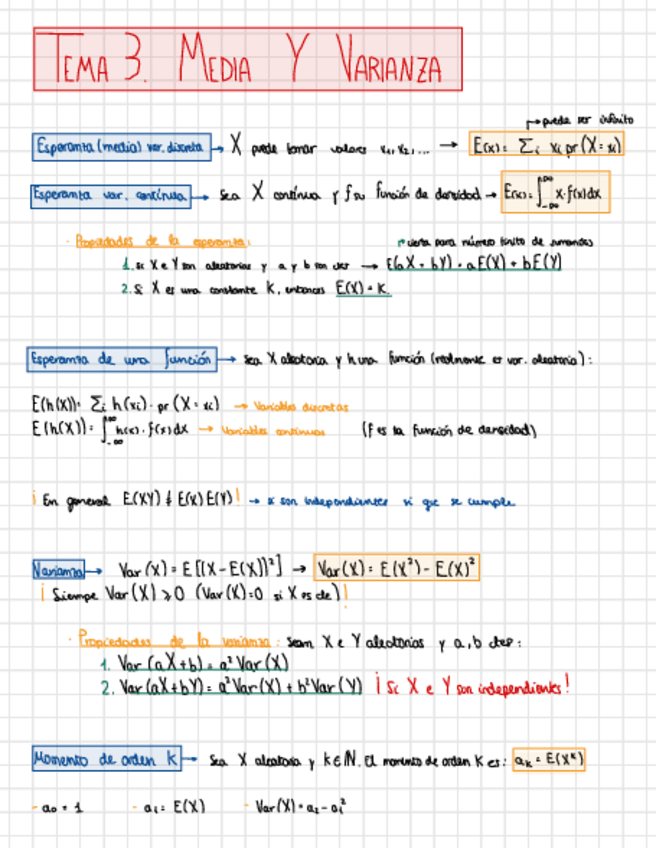 TEMA 3. MEDIA Y VARIANZA
↱ puede ser infinito
Esperanza (media) var. discreta → X puede tomar valores x₁, x₂, ... → E(x) = Σᵢ xᵢ pr (X = xᵢ)
Esperanza var. continua → Sea X continua y f su función de densidad → E(x) = ∫_{-∞}^{+∞} x · f(x) dx
· Propiedades de la esperanza:
cierta para número finito de sumandos
1. si X e Y son aleatorias y a y b son cter → E(aX + bY) = aE(X) + bE(Y)
2. Si X es una constante K, entonces E(X) = K.
Esperanza de una función → Sea X aleatoria y h una función (realmente es var. aleatoria):
E(h(X)) = Σᵢ h(xᵢ) · pr (X = xᵢ) → Variables discretas
E(h(X)) = ∫_{-∞}^{+∞} h(x) · f(x) dx → Variables continuas (f es la función de densidad)
¡ En general E(XY) ≠ E(X) E(Y) ! → si son independientes si que se cumple
Varianza → Var (X) = E [(X - E(X))²] → Var (X) = E(X²) - E(X)²
¡ Siempre Var (X) ≥ 0 (Var (X) = 0 si X es cte) !
· Propiedades de la varianza: Sean X e Y aleatorias y a, b cter:
1. Var (aX + b) = a² Var (X)
2. Var (aX + bY) = a² Var (X) + b² Var (Y) ¡ Si X e Y son independientes !
Momento de orden k → Sea X aleatoria y k ∈ ℕ. El momento de orden K es: aₖ = E(Xᵏ)
- a₀ = 1 - a₁ = E(X) - Var (X) = a₂ - a₁²